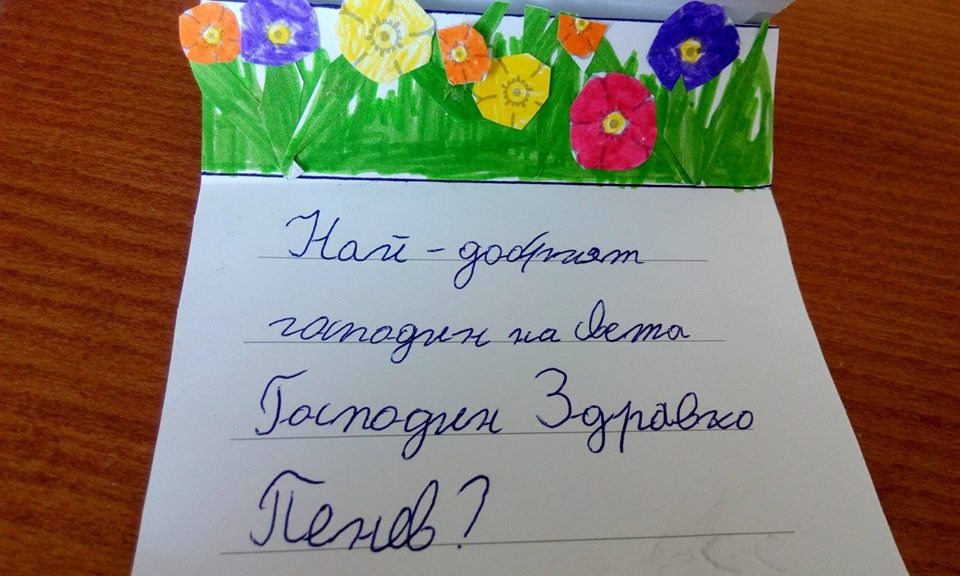 Най-добрият
господин на света
Господин Здравко
Пенев?